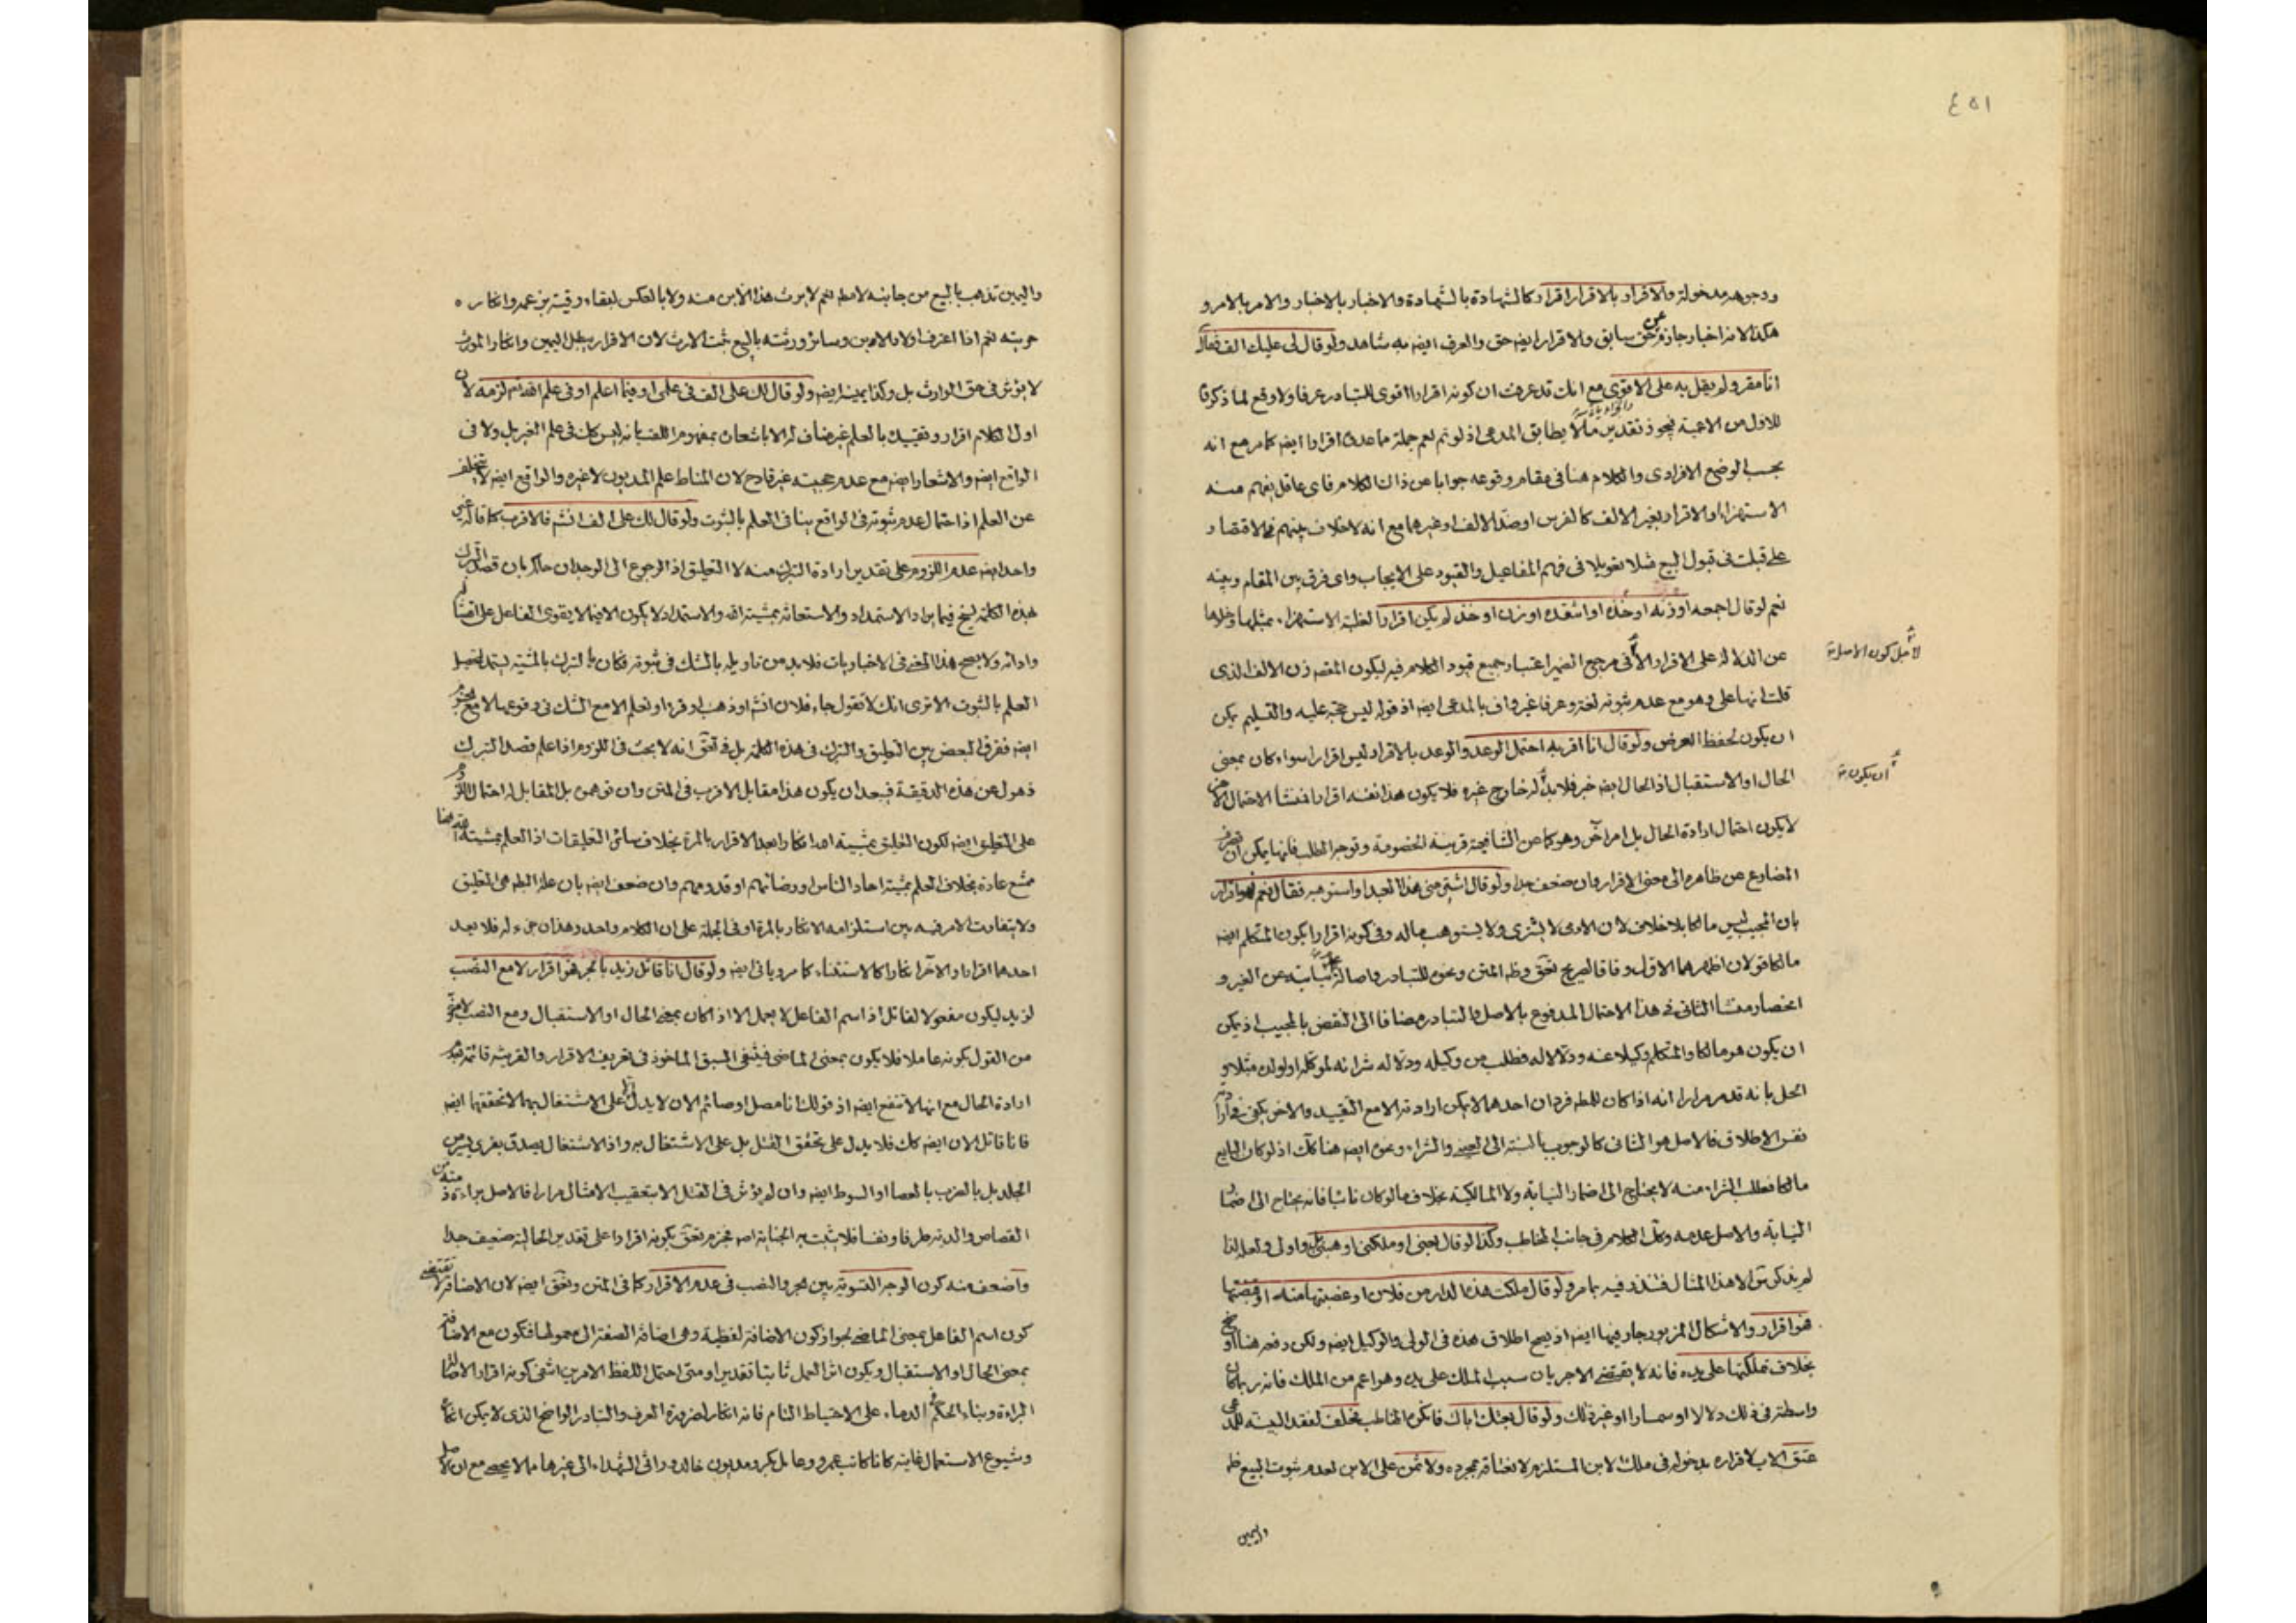 ٤٥١
ووجوهه مدخولة والاقرار بالاقرار اقرار كالشهادة بالشهادة والاخبار بالاخبار والامر بالامر و
هكذا لانه اخبار جازم عن حق سابق والاقرار ايضا حق والعرف ايضا به شاهد ولو قال لي عليك الف فقال
انا مقر ولم يقل به على الاقوى مع انك قد عرفت ان كونه اقرارا اقوى للتبادر عرفا ولا وقع لما ذكر
بحسب الوضع الافرادي والكلام هنا في مقام وقوعه جوابا عن ذلك الكلام فاي عاقل يفهم منه
الاستهزاء او الاقرار بغير الالف كالفرس او ضد الالف او غيرهما مع انه لا خلاف بينهم في الاقتصار
على قبلت في قبول البيع مثلا تعويلا في فهم المفاعيل والقيود على الايجاب واي فرق بين المقام وبينه
نعم لو قال اجمعه او زنه او خذه او انتقده او زن او خذ لم يكن اقرارا لغلبة الاستهزاء بمثلها وخلوها
عن الدلالة على الاقرار مرجع الضمير اعتبار جميع قيود الكلام فيه ليكون المقصود زن الالف الذي
لا قبل كون الاصل
قلت انها علي وهو مع عدم ثبوته لغة وعرفا غير واف بالمدعى ايضا اذ قوله ليس حجة عليه والتسليم يمكن
ان يكون لحفظ العرض ولو قال انا اقر به احتمل الوعد والوعد بالاقرار ليس اقرارا سواء كان بمعنى
الحال او الاستقبال اذ الحال ايضا خبر فلا بد له خارج غيره فلا يكون هذا نفسه اقرارا فمنشأ الاحتمال
ان يكون
لا يكون احتمال ارادة الحال بل امر آخر وهو كما عن الشافعية قرينة الخصومة وتوجه الطلب فانها يمكن ان
المضارع عن ظاهره الى معنى الاقرار وان ضعف جدا ولو قال اشتر مني هذا العبد او استوهبه فقال نعم فهو اقرار
بان المجيب ليس مالكا بلا خلاف لان الادمي لا يشترى ولا يستوهب ماله وفي كونه اقرارا بكون المتكلم ايضا
مالكا قولان اظهرهما الاول وفاقا لصريح وظاهر المتن ونحوه للتبادر واصالة عدم نيابته عن الغير و
انحصار منشأ الثاني في هذا الاحتمال المدفوع بالاصل والتبادر مضافا الى النقض بالمجيب اذ يمكن
ان يكون هو مالكا والمتكلم وكيلا عنه ودلالا له فطلب من وكيله ودلاله شرائه لموكله او لولده مثلا و
الحل بانه قد مر مرارا انه اذا كان للمطلق فردان احدهما لا يمكن ارادته الا مع التقييد والاخر يكفي في
نفس الاطلاق فالاصل هو الثاني كالوجوب بالنسبة الى والشراء ونحوه ايضا هنا كك اذ لو كان البايع
مالكا فطلب الشراء منه لا يحتاج الى اضمار النيابة ولا المالكية بخلاف ما لو كان نائبا فانه يحتاج الى
النيابة والاصل عدمه وكك الكلام في جانب المخاطب وكذا لو قال بعني او ملكني او هبني واولى ولعله لذا
لم يذكر الا هذا المثال فتدبر فيه بامر ولو قال ملكت هذه الدار من فلان او غصبتها منه او قبضتها
فهو اقرار والاشكال المزبور جار فيها ايضا اذ يصح اطلاق هذه في الولي والوكيل ايضا ولكن دفعه هنا
بخلاف تملكتها على يده فانه لا يقتضي الا جريان سبب الملك على يده وهو اعم من الملك فانه ربما كان
واسطة في ذلك دلالا او سمسارا او غير ذلك ولو قال بعتك اباك فانكر المخاطب تحلف لفقد البينة
عتق الاب لاقراره بدخوله في ملك الابن المستلزم لانعتاقه بمجرده ولا ثمن على الابن لعدم ثبوت البيع
واليمين
واليمين تذهب بالبيع من جانبه لا نعم لا يرث هذا الابن منه ولا بالعكس لبقاء رقيته بزعمه وانكاره
حريته نعم اذا اعترف اولاد الابن وسائر ورثته بالبيع ثبت الارث لان الاقرار يبطل اليمين وانكار المورث
لا يؤثر في حق الوارث بل وكذا يمينه ايضا ولو قال لك علي الف في علمي او فيما اعلم او في علم الله لزمه لان
اول الكلام اقرار وتقييده بالعلم غير مضاف له الا باشعار بمفهوم اللقب بانه ليس كك في علم الغير بل ولا في
الواقع ايضا والاشعار ايضا مع عدم حجيته غير قادح لان المناط علم المديون لا غيره والواقع ايضا لا يتخلف
عن العلم اذ احتمال عدم ثبوته في الواقع ينافي العلم بالثبوت ولو قال لك علي الف انشاء فالاقرب كما قاله غير
واحد ايضا عدم اللزوم على تقدير ارادة التبرك منه لا التعليق اذ الرجوع الى الوجدان حاكم بان قصد التبرك
هذه الكلمة فيما يراد الاستمداد والاستعانة بمشية الله والاستمداد لا يكون الا فيما لا يقوى الفاعل على
وادائه ولا يصح هذا المعنى في الاخباريات فلا بد من تأويله بالشك في ثبوته فكان بالتبرك بالمشية يستمد لتحصيل
العلم بالثبوت الا ترى انك لا تقول جاء فلان انشاء او ذهب او قرء او تعلم الا مع الشك في وقوعها
ايضا ففرق البعض بين التعليق والتبرك في هذه الكلمة بل في انه لا بحث في اللزوم اذا علم قصد التبرك
ذهول عن هذه الدقيقة فبعد ان يكون هذا مقابل الاقرب في المتن وان توهم بل المقابل له احتمال اللزوم
على التعليق ايضا لكون التعليق بمشية الله انكارا بعد الاقرار بالمرة بخلاف سائر التعليقات اذ العلم بمشية الله
ممتنع عادة بخلاف العلم بمشية احاد الناس او رضائهم او قدومهم وان ضعف ايضا بان علة البطلان هي التعليق
ولا يتفاوت الامر فيه بين استلزامه الانكار بالمرة او في الجملة على ان الكلام واحد وهذان جزء له فلا يعد
احدهما اقرارا والآخر انكارا كالاستثناء كما مر وياتي ايضا ولو قال انا قاتل زيد بالجر فهو اقرار لا مع النصب
لزيد ليكون مفعولا لقاتل اذ اسم الفاعل لا يعمل الا اذا كان بمعنى الحال او الاستقبال ومع النصب
من القول بكونه عاملا فلا يكون بمعنى الماضي فينتفي السبق الماخوذ في تعريف الاقرار والقرينة قائمة
ارادة الحال مع انها لا تنفع ايضا اذ قولك انا مصل او صائم الان لا يدل الا على الاشتغال بهما لا تحققهما ايضا
فانا قاتل الان ايضا كك فلا يدل على تحقق القتل بل على الاشتغال به واذ الاشتغال يصدق بغرى يسير من
الجلد بل بالضرب بالعصا او السوط ايضا وان لم يؤثر في القتل الا بتعقيب الامثال مرارا فالاصل براءة ذمته من
القصاص والدية طرفا ونفسا فلا يثبت به الجناية اصلا فجزم بكونه اقرارا على تقدير الحالية ضعيف جدا
واضعف منه كون الوجه التسوية بين الجر والنصب في عدم الاقرار كما في المتن ايضا لان الاضافة لا تقتضي
كون اسم الفاعل بمعنى الماضي لجواز كون الاضافة لفظية وهي اضافة الصفة الى معمولها فتكون مع الاضافة
بمعنى الحال او الاستقبال ويكون اثر العمل ثابتا تقديرا ومتى احتمل اللفظ الامرين انتفى كونه اقرارا لاصالة
البراءة وبناء الحكم في الدماء على الاحتياط التام فانه انكار لضرورة العرف والتبادر الواضح الذي لا يمكن انكاره
وشيوع الاستعمال غايته كانا كاتب عمرو وعامل بكر ومديون خالد الى غيرها مما لا يحصى مع ان الاصل